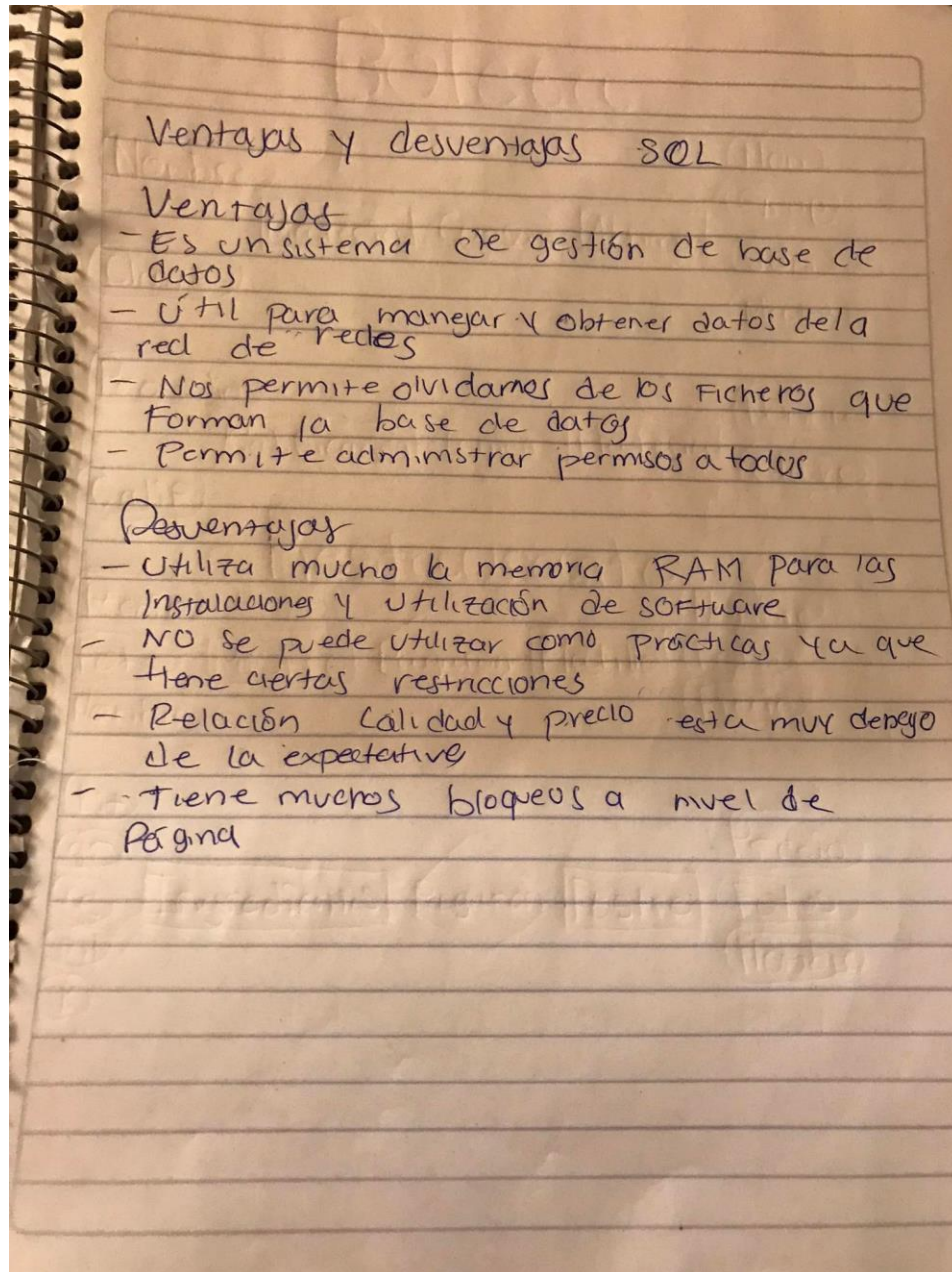 Ventajas y desventajas SQL
Ventajas
- Es un sistema de gestión de base de
datos
- Útil para manejar y obtener datos de la
red de redes
- Nos permite olvidarnos de los Ficheros que
Forman la base de datos
- Permite administrar permisos a todos
Desventajas
- Utiliza mucho la memoria RAM para las
Instalaciones y utilización de software
- NO se puede utilizar como prácticas ya que
tiene ciertas restricciones
- Relación calidad y precio esta muy debajo
de la expectative
- Tiene muchos bloqueos a nivel de
Página